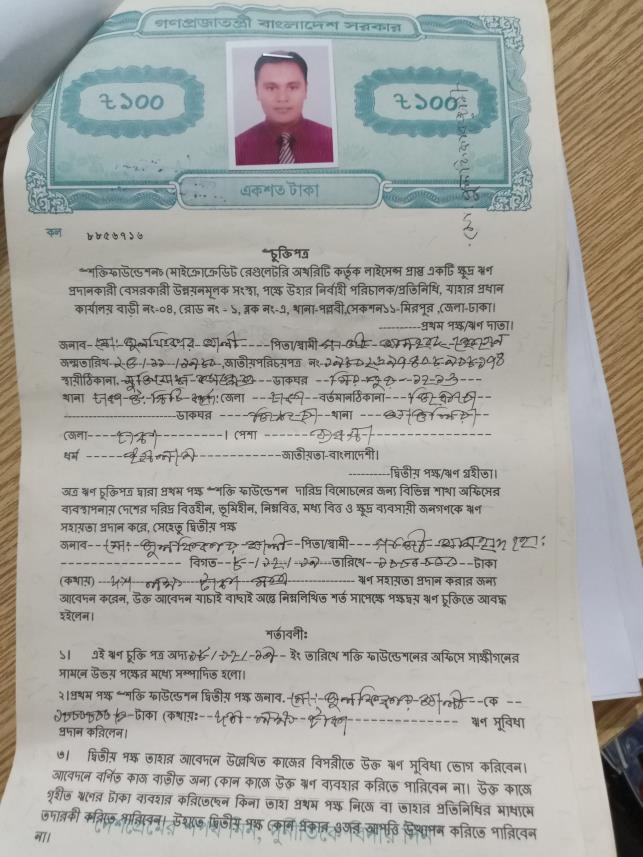 গণপ্রজাতন্ত্রী বাংলাদেশ সরকার
৳১০০ ৳১০০
একশত টাকা
কন ৮৮৫৬৭১৬
চুক্তিপত্র
শক্তিফাউন্ডেশনঃ (মাইক্রোক্রেডিট রেগুলেটরি অথরিটি কর্তৃক লাইসেন্স প্রাপ্ত একটি ক্ষুদ্র ঋণ
প্রদানকারী বেসরকারী উন্নয়নমূলক সংস্থা, পক্ষে উহার নির্বাহী পরিচালক/প্রতিনিধি, যাহার প্রধান
কার্যালয় বাড়ী নং-০৪, রোড নং - ১, ব্লক নং-এ, থানা-পল্লবী,সেকশন১১-মিরপুর ,জেলা-ঢাকা।
----------প্রথম পক্ষ/ঋণ দাতা।
জনাব- মোঃ জুলফিকার আলী -----পিতা/স্বামী
জন্মতারিখ- ,জাতীয়পরিচয়পত্র নং-
স্থায়ীঠিকানা- ---- ডাকঘর ---
থানা জেলা -- ঢাকা -- বর্তমানঠিকানা---
------------ডাকঘর ---- থানা ---
জেলা---- ঢাকা --------। পেশা ------- ব্যবসা
ধর্ম ----- ইসলাম -----------জাতীয়তা-বাংলাদেশী।
----------দ্বিতীয় পক্ষ/ঋণ গ্রহীতা।
অত্র ঋণ চুক্তিপত্র দ্বারা প্রথম পক্ষ শক্তি ফাউন্ডেশন দারিদ্র বিমোচনের জন্য বিভিন্ন শাখা অফিসের
ব্যবস্থাপনায় দেশের দরিদ্র বিত্তহীন, ভূমিহীন, নিম্নবিত্ত, মধ্য বিত্ত ও ক্ষুদ্র ব্যবসায়ী জনগণকে ঋণ
সহায়তা প্রদান করে, সেহেতু দ্বিতীয় পক্ষ
জনাব-- মোঃ জুলফিকার আলী --পিতা/স্বামী----
---------------- বিগত-- --তারিখে-- ---টাকা
(কথায়) --- দশ লক্ষ টাকা মাত্র ------ ঋণ সহায়তা প্রদান করার জন্য
আবেদন করেন, উক্ত আবেদন যাচাই বাছাই অন্তে নিম্নলিখিত শর্ত সাপেক্ষে পক্ষদ্বয় ঋণ চুক্তিতে আবদ্ধ
হইলেন।
শর্তাবলীঃ
১। এই ঋণ চুক্তি পত্র অদ্য - ইং তারিখে শক্তি ফাউন্ডেশনের অফিসে সাক্ষীগনের
সামনে উভয় পক্ষের মধ্যে সম্পাদিত হলো।
২।প্রথম পক্ষ শক্তি ফাউন্ডেশন দ্বিতীয় পক্ষ জনাব. মোঃ জুলফিকার আলী -কে --
টাকা (কথায়ঃ-- দশ লক্ষ টাকা ------------- ঋণ সুবিধা
প্রদান করিলেন।
৩। দ্বিতীয় পক্ষ তাহার আবেদনে উল্লেখিত কাজের বিপরীতে উক্ত ঋণ সুবিধা ভোগ করিবেন।
আবেদনে বর্ণিত কাজ ব্যতীত অন্য কোন কাজে উক্ত ঋণ ব্যবহার করিতে পারিবেন না। উক্ত কাজে
গৃহীত ঋণের টাকা ব্যবহার করিতেছেন কিনা তাহা প্রথম পক্ষ নিজে বা তাহার প্রতিনিধির মাধ্যমে
তদারকী করিতে পারিবেন। উহাতে দ্বিতীয় পক্ষ কোন প্রকার ওজর আপত্তি উত্থাপন করিতে পারিবেন
না।